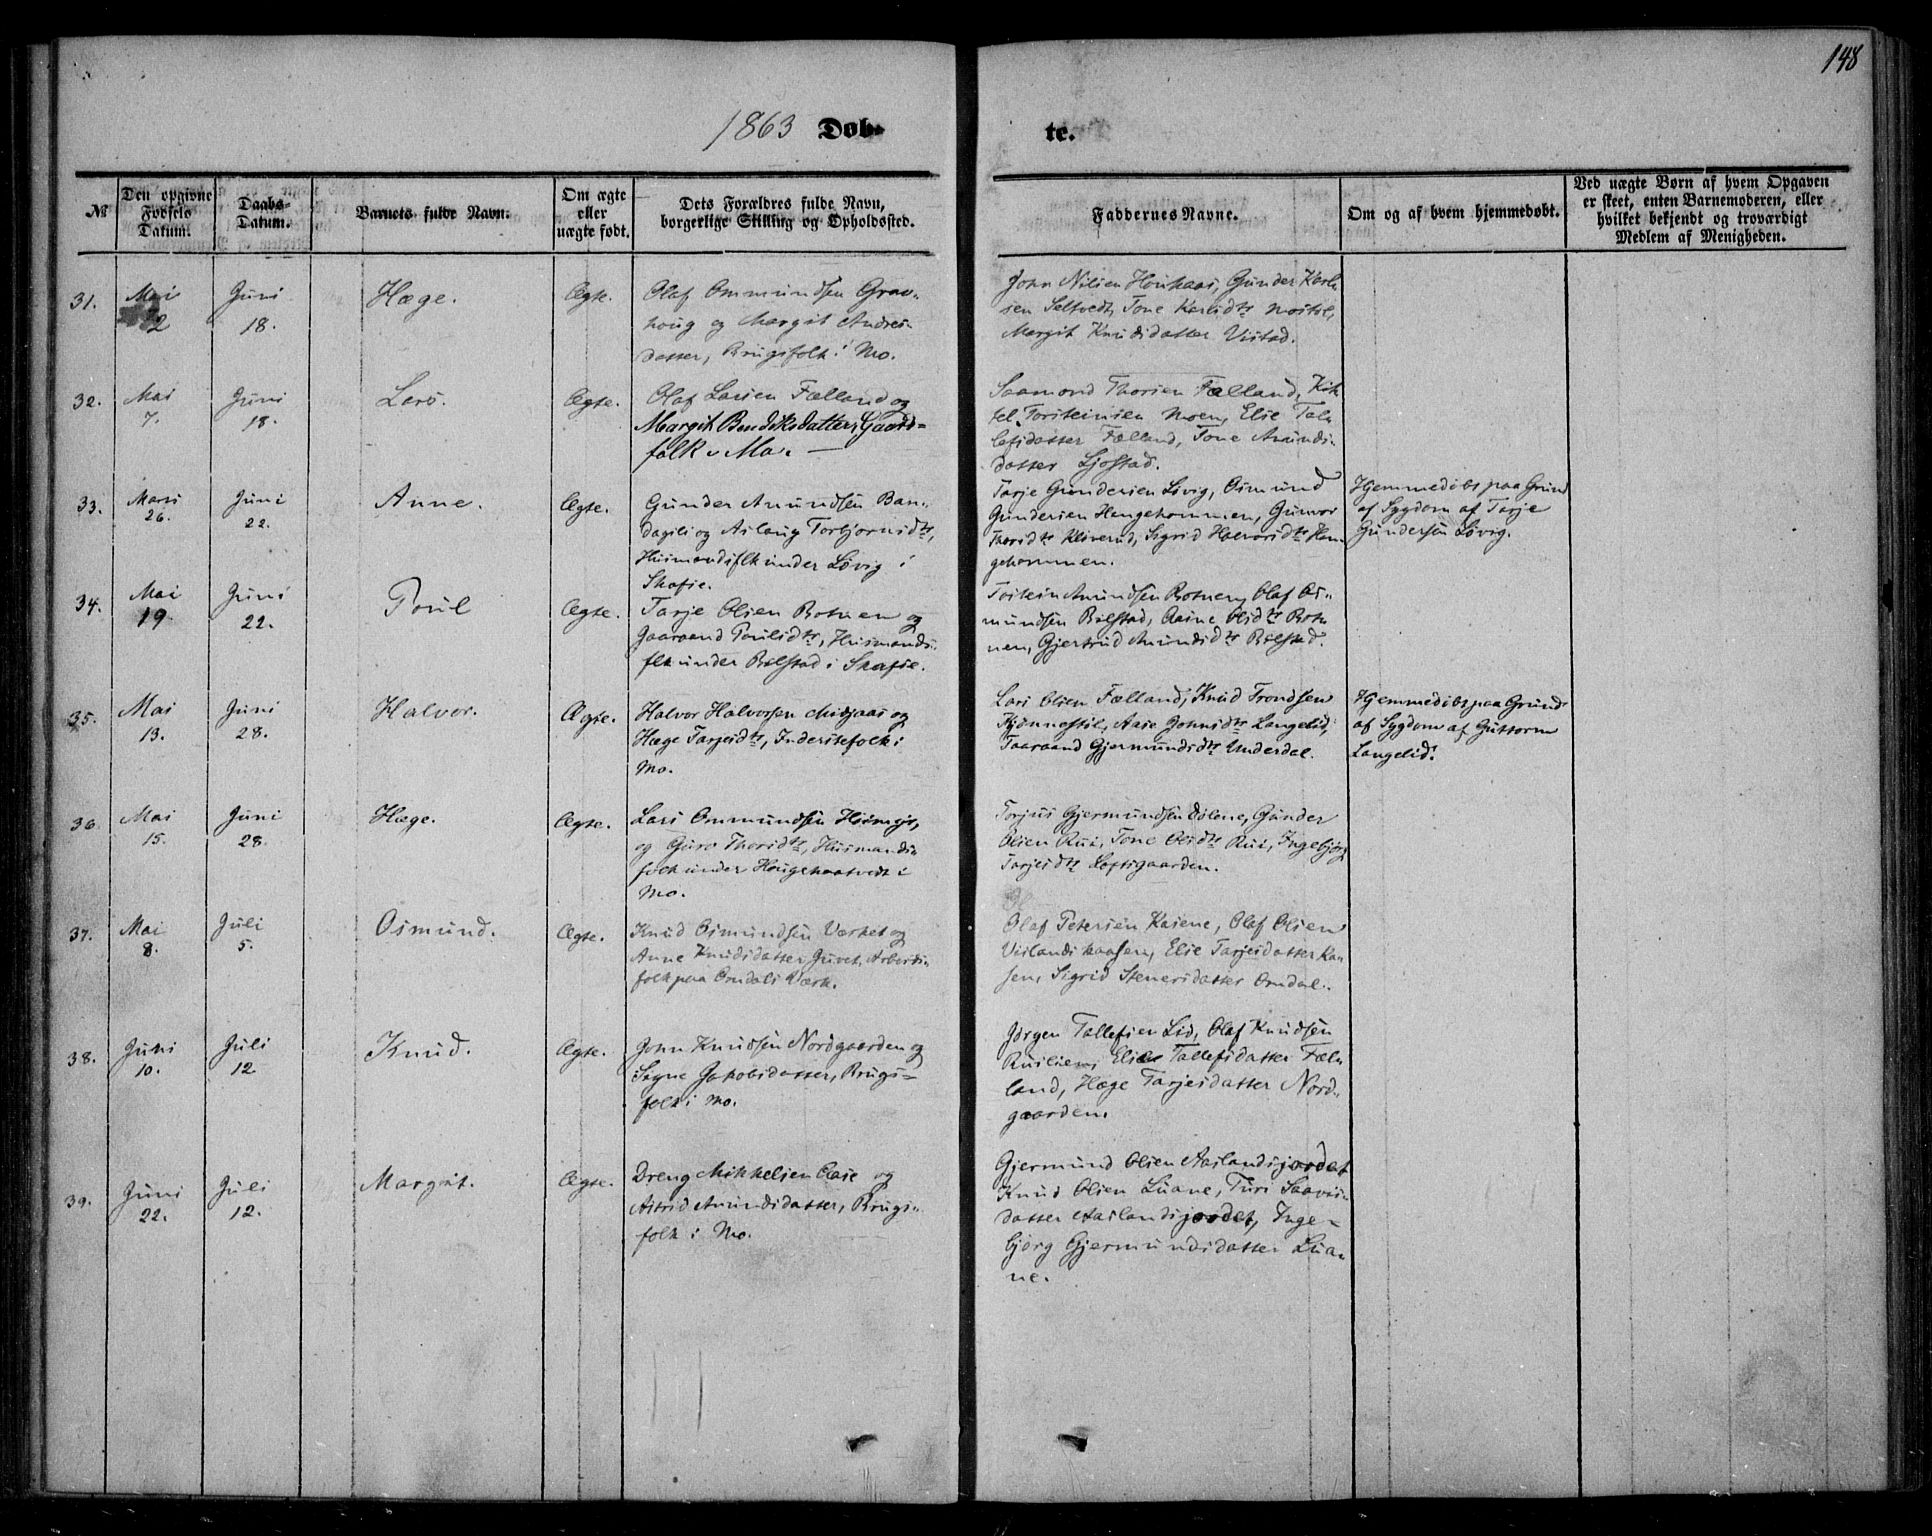 148
1863 Døb-
te.
№
Den opgivne Fødsels Datum.
Daabs-Datum.
Barnets fulde Navn.
Om ægte eller uægte født.
Dets Forældres fulde Navn, borgerlige Stilling og Opholdssted.
Faddernes Navne.
Om og af hvem hjemmedøbt.
Ved uægte Børn af hvem Opgaven er skeet, enten Barnemoderen, eller hvilket bekjendt og troværdigt Medlem af Menigheden.
31.
Mai 2
Juni 18.
Hæge.
Ægte.
Olaf Ommundsen Grav-
houg og Margit Andres-
datter, Brugsfolk i Mo.
John Nilsen Honhaas, Gunder Karl-
sen Seltvedt, Tone Karlsdtr
Margit Knudsdatter Vistad.
32.
Mai 7.
Juni 18.
Lars.
Ægte.
Olaf Larsen Fælland og
Margit Bendiksdatter, Gaard-
folk i Mo.
Saamond Thorsen Fælland, Kit-
tel Torsteinsen Moen, Elise Tal-
lefsdatter Fælland, Tone Amunds-
datter Sjostad.
33.
Marts 26.
Juni 22.
Anne.
Ægte.
Gunder Amundsen Ban-
dagsli og Aslaug Torbjørnsdtr,
Huusmandsflk under Løvig i
Skafse.
Tarje Gundersen Løvig, Osmund
Gundersen Hengehommen, Gunvor
Thorsdtr Kliverud, Sigrid Halvorsdtr Hen-
gehommen.
Hjemmedøbt paa Grund
af Sygdom af Tarje
Gundersen Løvig.
34.
Mai 19
Juni 22.
Poul
Ægte.
Tarje Olsen Botnen og
Gaaraand Poulsdtr, Huusmands-
flk under Bølstad i Skafse.
Tostein Amundsen Botnen, Olaf Os-
mundsen Bølstad, Aasne Olsdtr Bot-
nen, Gjertrud Amundsdtr Bølstad.
35.
Mai 13.
Juni 28.
Halvor.
Ægte.
Halvor Halvorsen Midjaas og
Hæge Tarjeisdtr, Inderstefolk i
Mo.
Lars Olsen Fælland, Knud Trondsen
Kjønnestil, Aase Johnsdtr Langelid,
Taaraand Gjermundsdtr Underdal.
Hjemmedøbt paa Grund
af Sygdom af Guttorm
Langelid.
36.
Mai 15.
Juni 28.
Hæge.
Ægte.
Lars Ommundsen
og Guro Thorsdtr, Huusmands-
folk under Hougekaatvedt i
Mo.
Torjus Gjermundsen Dølene, Gunder
Olsen Rui, Tone Olsdtr Rui, Ingebjørg
Tarjeisdtr Loftsgaarden.
37.
Mai 8.
Juli 5.
Osmund.
Ægte.
Knud Osmundsen Værket og
Anne Knudsdatter Juvet, Arbeids-
folk paa Omdals Værk.
Olaf Petersen Kasene, Olaf Olsen
Vislandskaasen, Elise Tarjeisdatter Kaa-
sen, Sigrid Stenersdatter Omdal.
38.
Juni 10.
Juli 12
Knud.
Ægte.
John Knudsen Nordgaarden og
Signe Jakobsdatter, Brugs-
folk i Mo.
Jørgen Tallefsen Lid, Olaf Knudsen
Ruslien, Elise Tallefsdatter Fæl-
land, Hæge Tarjeisdatter Nord-
gaarden.
39.
Juni 22.
Juli 12.
Margit.
Ægte.
Dreng Mikkelsen Aase og
Astrid Amundsdatter, Brugs-
folk i Mo.
Gjermund Olsen Aaslandsjordet
Knud Olsen Luane, Turi Saavis-
datter Aaslandsjordet, Inge-
bjørg Gjermundsdatter Lua-
ne.